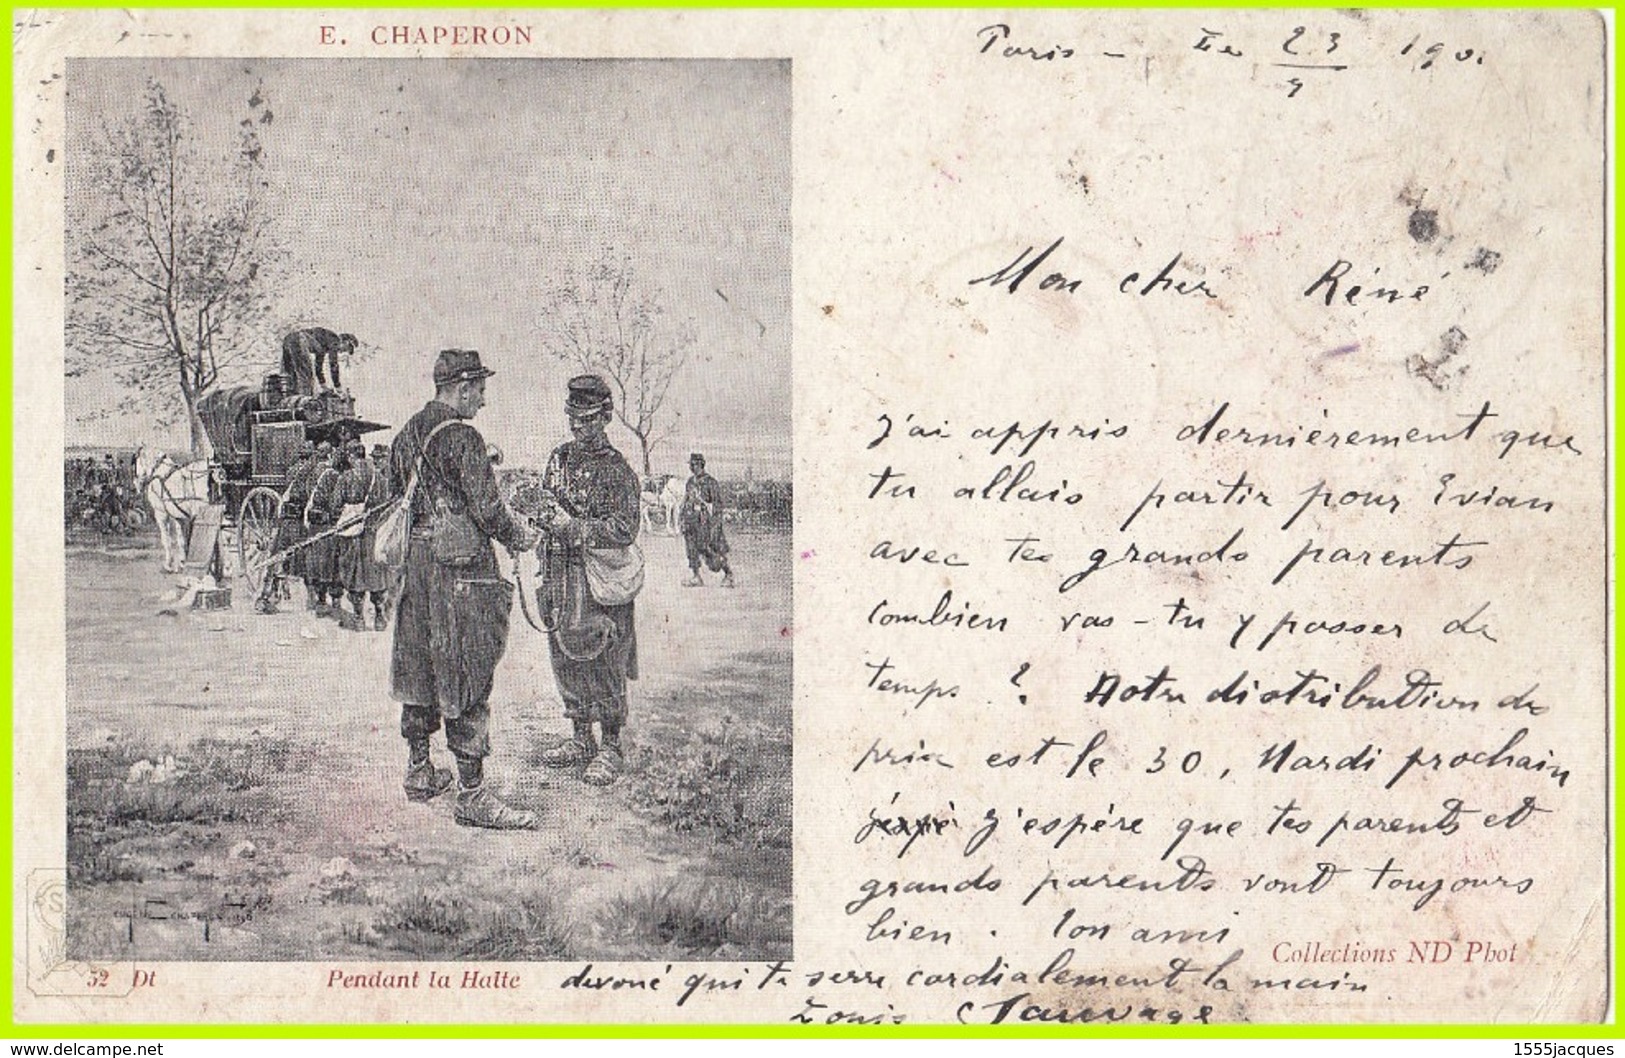 E. CHAPERON
Paris - Le 23/7 190.
Mon cher Réné
J'ai appris dernièrement que
tu allais partir pour Evian
avec tes grands parents
combien vas-tu y passer de
temps ? Notre distribution de
prix est le 30, Mardi prochain
j'espè J'espère que tes parents et
grands parents vont toujours
bien. Ton ami
Collections ND Phot
52 Dt
Pendant la Halte
devoué qui te serre cordialement la main
Louis Sauvage
EUGÈNE CHAPERON
delcampe.net
1555jacques